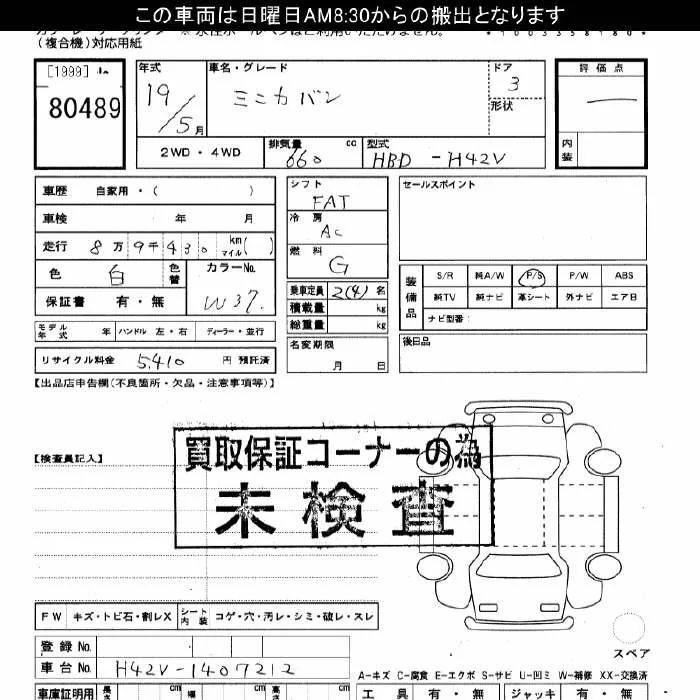 この車両は日曜日AM8:30からの搬出となります
(複合機)対応用紙
[1999]
80489
年式
19/5月
車名・グレード
ミニカバン
ドア
3
形状
評価点
内装
2WD・4WD
排気量
660
cc
型式
HBD-H42V
車歴 自家用・( )
車検 年 月
走行 8万9千430 km マイル( )
色 白 色替
カラーNo.
W37.
保証書 有・無
モデル年式 年 ハンドル 左・右 ディーラー・並行
リサイクル料金 5,410 円 預託済
シフト
FAT
冷房
AC
燃料
G
乗車定員 2(4) 名
積載量 kg
総重量 kg
名変期限
月 日
セールスポイント
装備品
S/R 純A/W P/S P/W ABS
純TV 純ナビ 革シート 外ナビ エアB
ナビ型番:
後日品
【出品店申告欄(不良箇所・欠品・注意事項等)】
【検査員記入】
買取保証コーナーの為
未検査
FW キズ・トビ石・割レX シート内装 コゲ・穴・汚レ・シミ・破レ・スレ
スペア
登録No.
車台No. H42V-1407212
A-キズ C-腐食 E-エクボ S-サビ U-凹ミ W-補修 XX-交換済
車庫証明用 長さ cm 幅 cm 高さ cm
工具 有・無 ジャッキ 有・無